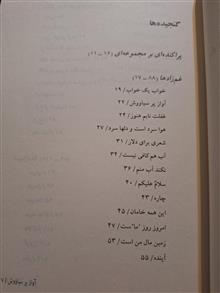 گنجیده‌ها
پراکنده‌ای بر مجموعه‌ای (۱۶-۱۱)
غم‌زادها (۸۸-۱۷)
خواب یک خواب/ ۱۹
آواز پر سیاووش/ ۲۲
غفلت نابم هنوز/ ۲۴
هوا سرد است و دلها سرد/ ۲۷
شعری برای دلار/ ۳۱
آب هم کافی نیست/ ۳۴
نکند آب منم/ ۳۶
سلامٌ علیکم/ ۴۰
چاره/ ۴۳
این همه خامان/ ۴۵
امروز روز "ما"ست/ ۴۷
زمین مال من است/ ۵۳
آینده/ ۵۵
آواز پر سیاووش/ ۷